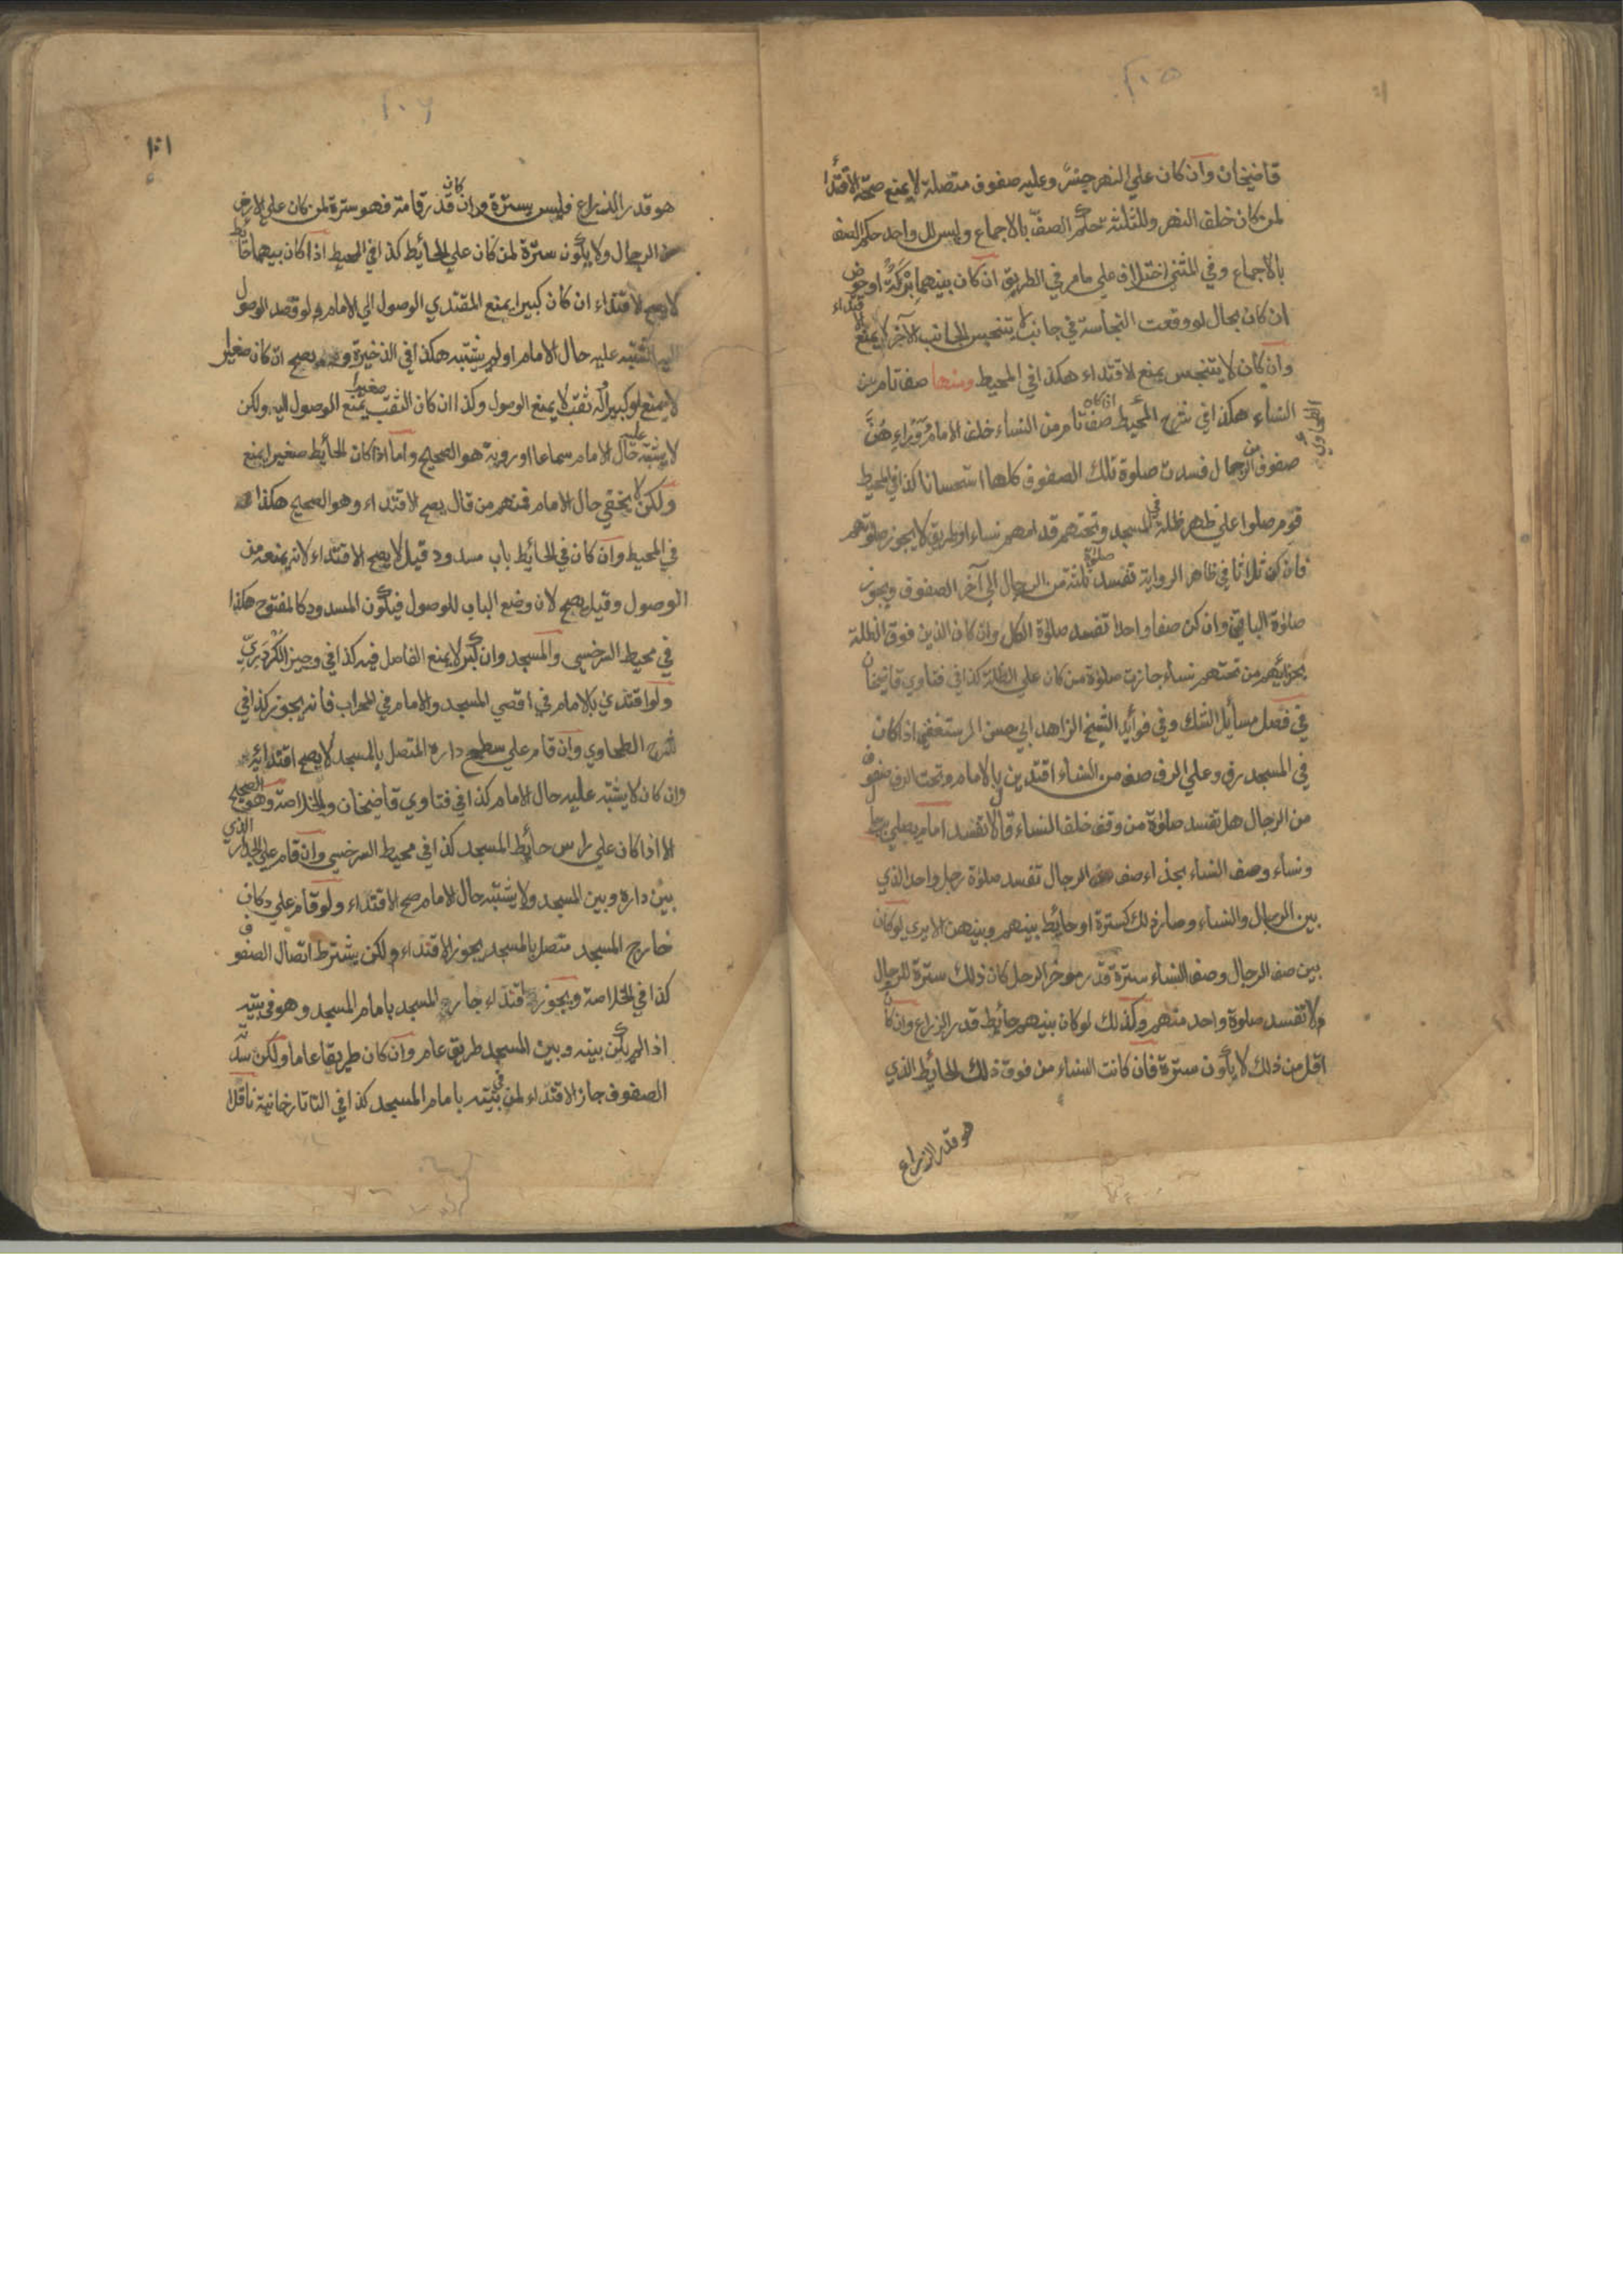 ٢٠٥
قاضيخان وان كان علي النهر جسر وعليه صفوف متصلة لا يمنع صحة الاقتدا
لمن كان خلف النهر وللثلثة حكم الصف بالاجماع وليس للواحد حكم الصف
بالاجماع وفي المثني اختلاف علي ما مر في الطريق ان كان بينهما بركة او حوض
ان كان بحال لو وقعت النجاسة في جانب تنجس الجانب الآخر لا يمنع الاقتداء
وان كان لا يتنجس يمنع الاقتداء هكذا في المحيط ومنها صف تام من
النساء هكذا في شرح المحيط اذا كان صف تام من النساء خلف الامام ووراءهن
صفوف من الرجال فسدت صلوة تلك الصفوف كلها استحسانا كذا في المحيط
قوم صلوا علي ظهر ظلة في المسجد وتحتهم قدامهم نساء او طريق لا يجوز صلوتهم
فان كن ثلاثا في ظاهر الرواية تفسد صلوة ثلثة من الرجال الي آخر الصفوف ويجوز
صلوة الباقي وان كن صفا واحدا تفسد صلوة الكل وان كان الذين فوق الظلة
بحزائهم من تحتهم نساء جازت صلوة من كان علي الظلة كذا في فتاوي قاضيخان
في فصل مسائل الشك وفي فوائد الشيخ الزاهد ابي حسن الرستغفني اذا كان
في المسجد رف وعلي الرف صف من النساء اقتدين بالامام وتحت الرف صفوف
من الرجال هل تفسد صلوة من وقف خلف النساء قال لا تفسد امام يصلي برجال
ونساء وصف النساء بحذاء صف الرجال تفسد صلوة رجل واحد الذي
بين الرجال والنساء وصار ذلك كسترة او حائط بينهم وبينهن الا يري لو كان
بين صف الرجال وصف النساء سترة قدر موخر الرحل كان ذلك سترة للرجال
ولا تفسد صلوة واحد منهم وكذلك لو كان بينهم حائط قدر الذراع وان كان
اقل من ذلك لا يكون سترة فان كانت النساء من فوق ذلك الحائط الذي
هو قدر الذراع
٢٠٦
هو قدر الذراع فليس بسترة وان كان قدر قامة فهو سترة لمن كان علي الارض
من الرجال ولا يكون سترة لمن كان علي الحائط كذا في المحيط اذا كان بينهما حائط
لا يصح الاقتداء ان كان كبيرا يمنع المقتدي الوصول الي الامام ولو قصد الوصول
اليه اشتبه عليه حال الامام او لم يشتبه هكذا في الذخيرة ويصح ان كان صغيرا
لا يمنع او كبيرا له ثقب لا يمنع الوصول وكذا ان كان الثقب صغيرا يمنع الوصول اليه ولكن
لا يشتبه عليه حال الامام سماعا او روية هو الصحيح واما اذا كان الحائط صغيرا يمنع
ولكن لا يخفي حال الامام فمنهم من قال يصح الاقتداء وهو الصحيح هكذا
في المحيط وان كان في الحائط باب مسدود قيل لا يصح الاقتداء لانه يمنعه من
الوصول وقيل يصح لان وضع الباب للوصول فيكون المسدود كالمفتوح هكذا
في محيط السرخسي والمسجد وان كبر لا يمنع الفاصل فيه كذا في وجيز الكردري
ولو اقتدي بالامام في اقصي المسجد والامام في المحراب فانه يجوز كذا في
شرح الطحاوي وان قام علي سطح داره المتصل بالمسجد لا يصح اقتدائه
وان كان لا يشتبه عليه حال الامام كذا في فتاوي قاضيخان والخلاصة وهو الصحيح
الا اذا كان علي راس حائط المسجد كذا في محيط السرخسي وان قام علي الجدار الذي
بين داره وبين المسجد ولا يشتبه حال الامام صح الاقتداء ولو قام علي دكان
خارج المسجد متصل بالمسجد يجوز الاقتداء ولكن يشترط اتصال الصفوف
كذا في الخلاصة ويجوز اقتداء جار المسجد بامام المسجد وهو في بيته
اذا لم يكن بينه وبين المسجد طريق عام وان كان طريقا عاما ولكن سدته
الصفوف جاز الاقتداء لمن في بيته بامام المسجد كذا في التاتارخانية ناقلا